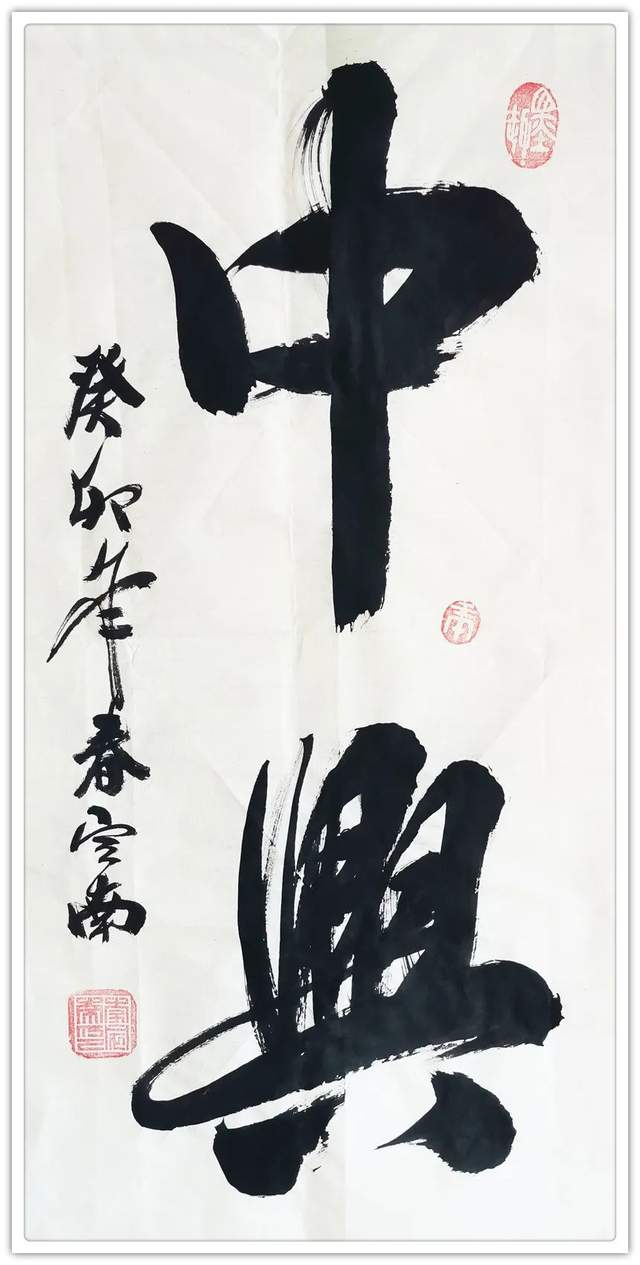 中興
癸卯年春定南